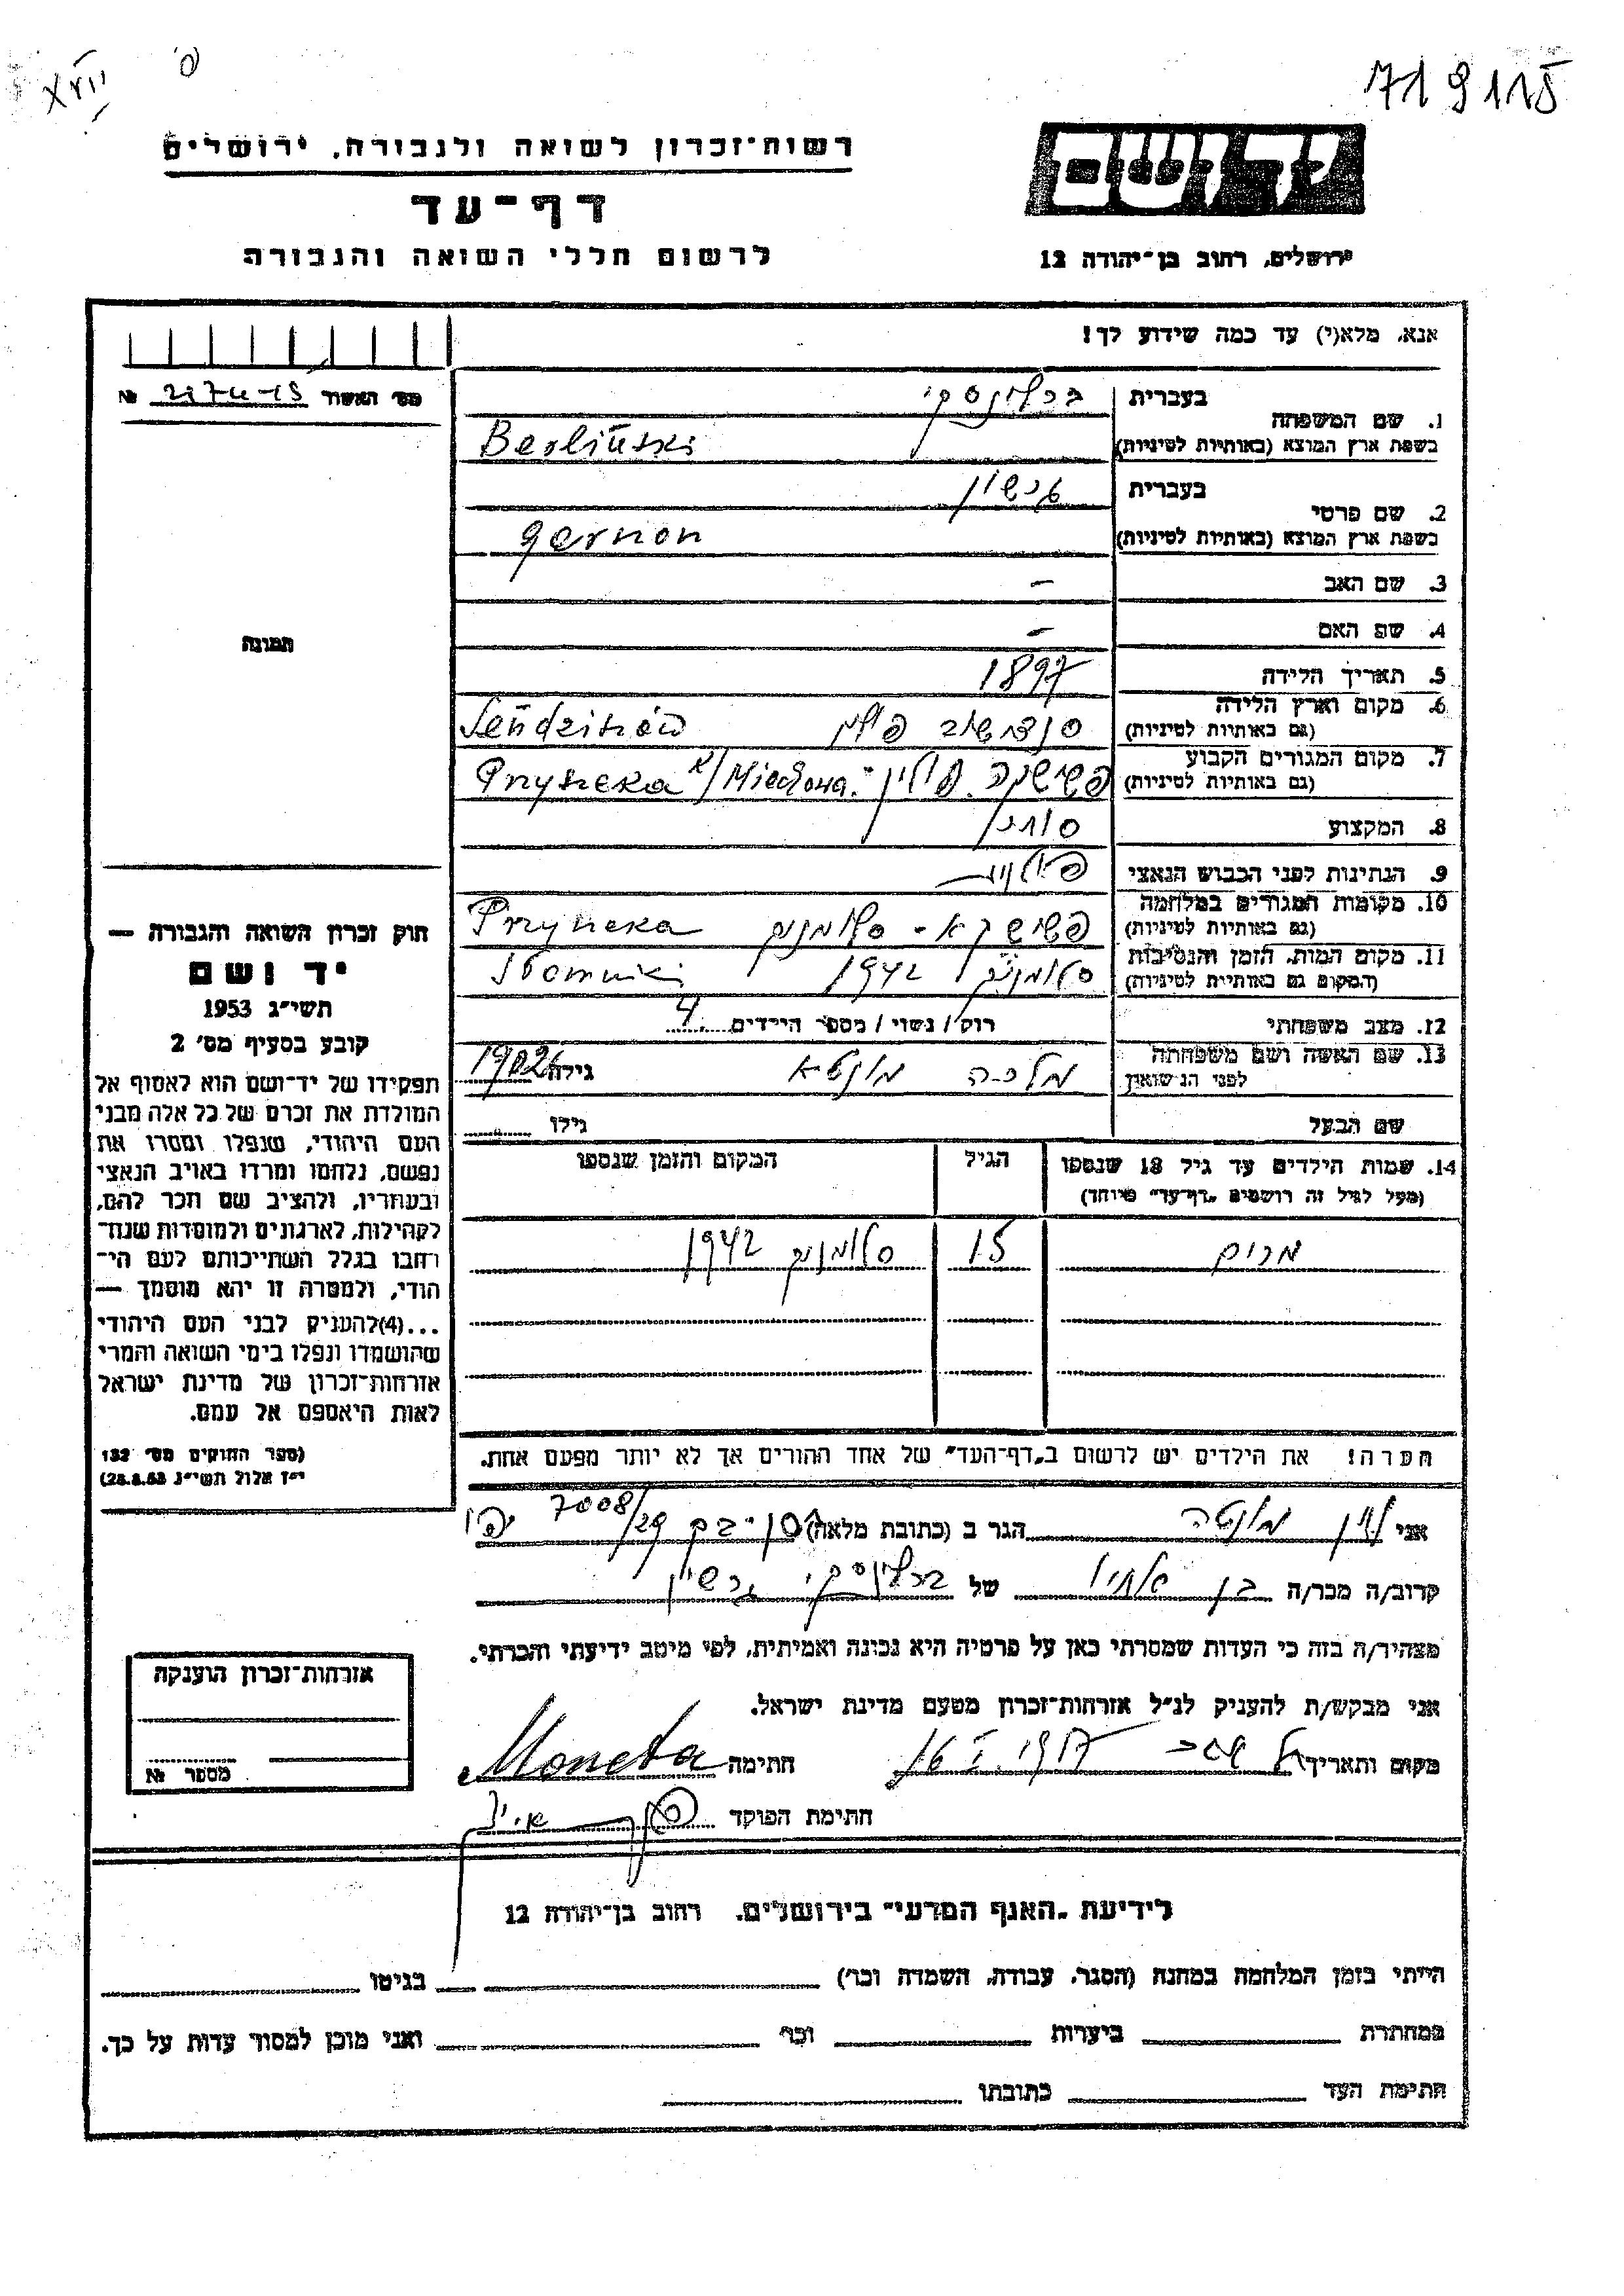 719115
XVII
רשות־זכרון לשואה ולגבורה, ירושלים
דף־עד
לרשום חללי השואה והגבורה
ידושם
ירושלים, רחוב בן־יהודה 12
אנא, מלא(י) עד כמה שידוע לך!
מס׳ האשור №
1. שם המשפחה
בעברית ברלינסקי
בשפת ארץ המוצא (באותיות לטיניות) Berliński
2. שם פרטי
בעברית גרשון
בשפת ארץ המוצא (באותיות לטיניות) gernon
3. שם האב –
4. שם האם –
5. תאריך הלידה 1897
6. מקום וארץ הלידה
(גם באותיות לטיניות) פולין Sendziszów
7. מקום המגורים הקבוע
(גם באותיות לטיניות) פולין Miechowa
8. המקצוע סוחר
9. הנתינות לפני הכבוש הנאצי פולנית
10. מקומות המגורים במלחמה
(גם באותיות לטיניות) פשישקא - סלומניק
11. מקום המות, הזמן והנסיבות
(המקום גם באותיות לטיניות) סלומניק 1942
12. מצב משפחתי רוק / נשוי / מספר הילדים 4
13. שם האשה ושם משפחתה
לפני הנישואין מלכה מונטא גילה 1902
שם הבעל גילו
14. שמות הילדים עד גיל 18 שנספו
(מעל לגיל זה רושמים „דף־עד״ מיוחד)
הגיל
המקום והזמן שנספו
מרים 15 סלומניק 1942
הערה! את הילדים יש לרשום ב„דף־העד״ של אחד ההורים אך לא יותר מפעם אחת.
תמונה
חוק זכרון השואה והגבורה —
יד ושם
תשי״ג 1953
קובע בסעיף מס׳ 2
תפקידו של יד־ושם הוא לאסוף אל
המולדת את זכרם של כל אלה מבני
העם היהודי, שנפלו ומסרו את
נפשם, נלחמו ומרדו באויב הנאצי
ובעוזריו, ולהציב שם וזכר להם,
לקהילות, לארגונים ולמוסדות שנח־
רחבו בגלל השתייכותם לעם הי־
הודי, ולמטרה זו יהא מוסמך —
...(4)להעניק לבני העם היהודי
שהושמדו ונפלו בימי השואה והמרי
אזרחות־זכרון של מדינת ישראל
לאות היאספם אל עמם.
(ספר החוקים מס׳ 132
י״ז אלול תשי״ג 28.8.53)
אני מונטה הגר ב (כתובת מלאה) 7008/29 יפו
קרוב/ה מכר/ה בן אחיו של ברלינסקי גרשון
מצהיר/ה בזה כי העדות שמסרתי כאן על פרטיה היא נכונה ואמיתית, לפי מיטב ידיעתי והכרתי.
אני מבקש/ת להעניק לנ״ל אזרחות־זכרון מטעם מדינת ישראל.
מקום ותאריך 16 I. 1957 חתימה Moneta
חתימת הפוקד
אזרחות־זכרון הוענקה
מספר №
לידיעת „האגף המדעי״ בירושלים, רחוב בן־יהודה 12
הייתי בזמן המלחמה במחנה (הסגר, עבודה, השמדה וכו׳) בגיטו
במחתרת ביערות וכו׳ ואני מוכן למסור עדות על כך.
חתימת העד כתובתו